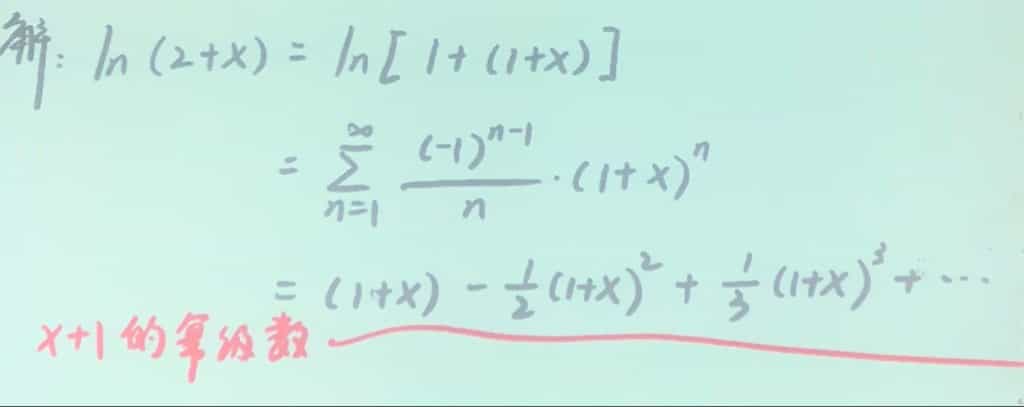 解: ln(2+x) = ln[1+(1+x)]
= \sum_{n=1}^{∞} \frac{(-1)^{n-1}}{n} · (1+x)^n
= (1+x) - \frac{1}{2}(1+x)^2 + \frac{1}{3}(1+x)^3 + ···
x+1的幂级数